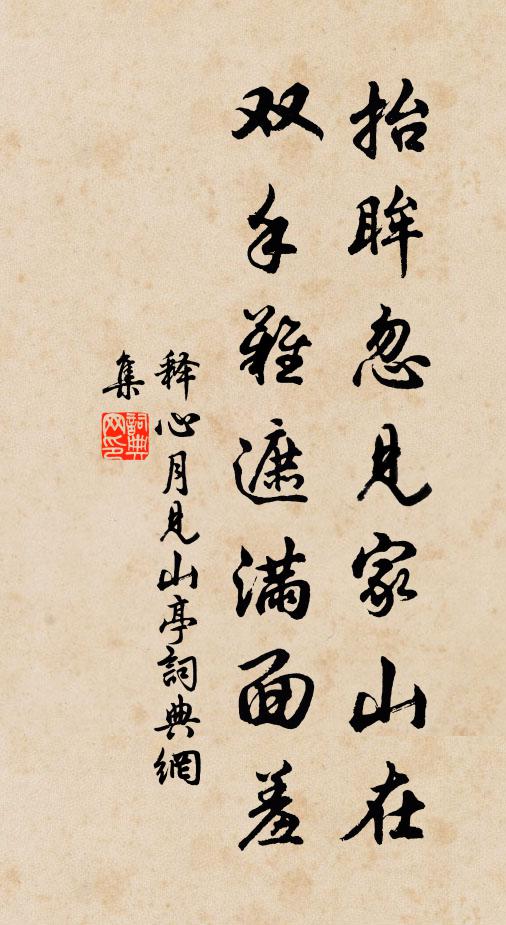 抬眸忽见家山在
双手难遮满面羞
释心月见山亭詞典網
集
詞典
网印